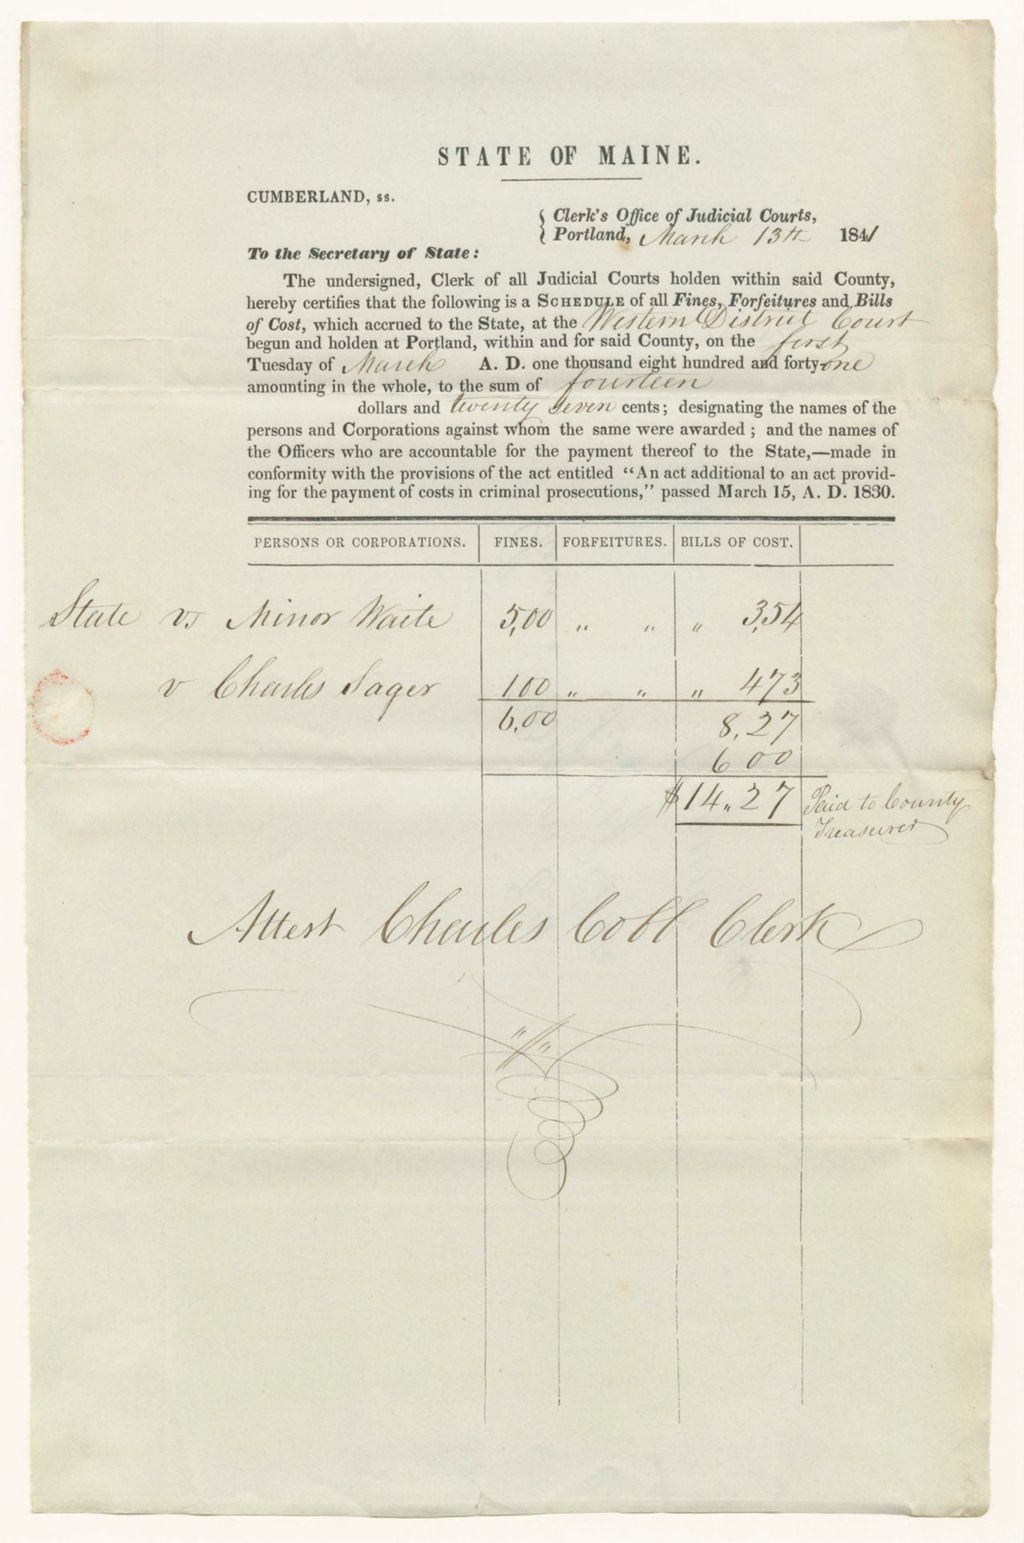 STATE OF MAINE.
CUMBERLAND, ss.
Clerk's Office of Judicial Courts,
Portland, March 13th 1841
To the Secretary of State:
The undersigned, Clerk of all Judicial Courts holden within said County,
hereby certifies that the following is a SCHEDULE of all Fines, Forfeitures and Bills
of Cost, which accrued to the State, at the Western District Court
begun and holden at Portland, within and for said County, on the first
Tuesday of March A. D. one thousand eight hundred and forty-one
amounting in the whole, to the sum of fourteen
dollars and twenty seven cents; designating the names of the
persons and Corporations against whom the same were awarded; and the names of
the Officers who are accountable for the payment thereof to the State,—made in
conformity with the provisions of the act entitled "An act additional to an act provid-
ing for the payment of costs in criminal prosecutions," passed March 15, A. D. 1830.
PERSONS OR CORPORATIONS. FINES. FORFEITURES. BILLS OF COST.
State vs Minor Waite 5,00 " " " 3,54
v Charles Sager 1 00 " " " 4 73
6,00 8,27
6 00
$14.27 Paid to County
Treasurer
Attest Charles Cobb Clerk